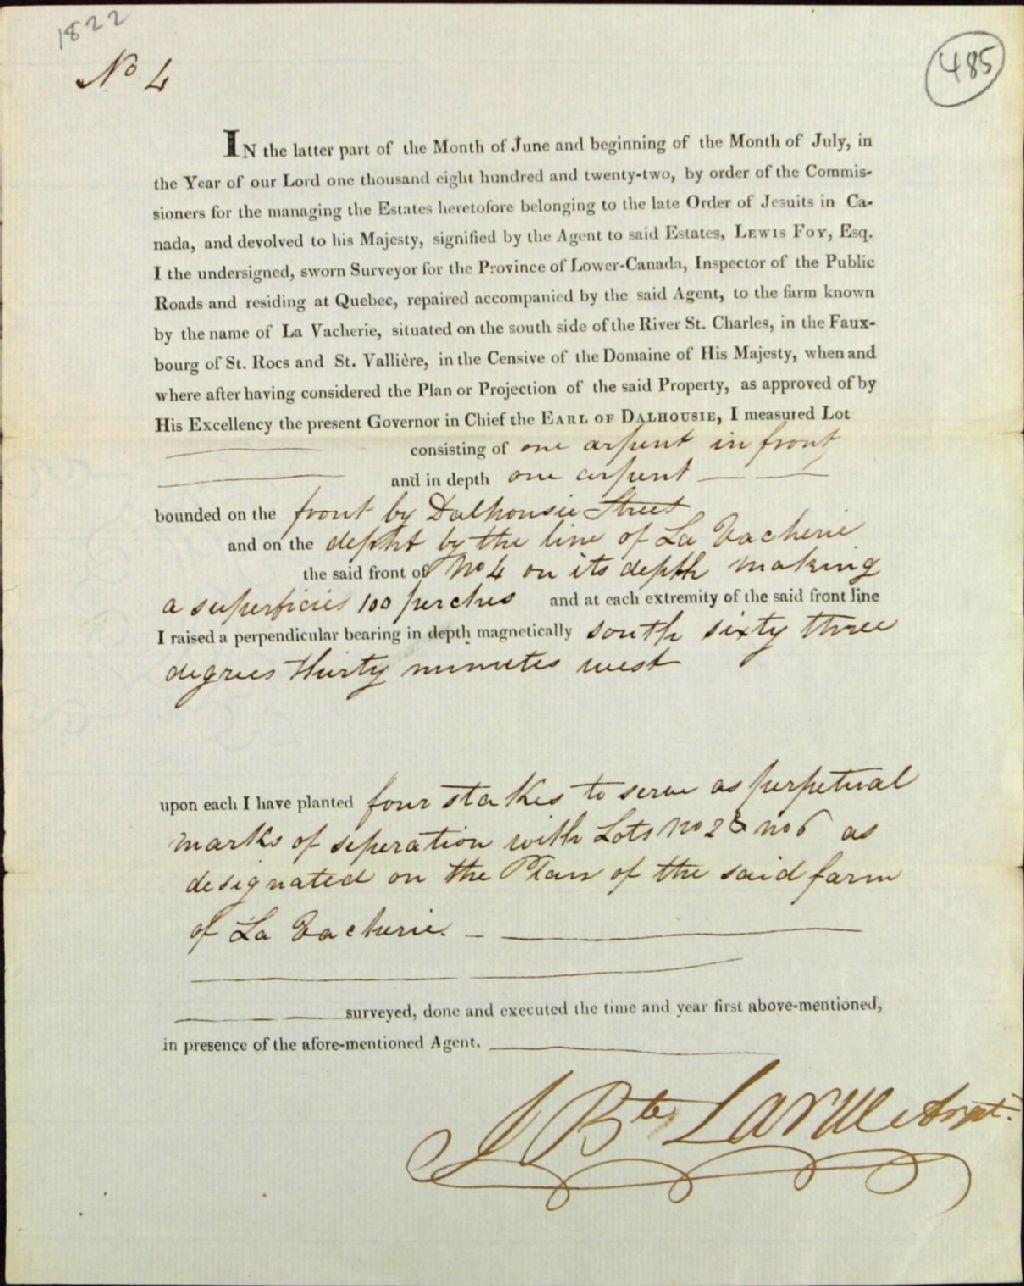 1822
No 4
485
IN the latter part of the Month of June and beginning of the Month of July, in
the Year of our Lord one thousand eight hundred and twenty-two, by order of the Commis-
sioners for the managing the Estates heretofore belonging to the late Order of Jesuits in Ca-
nada, and devolved to his Majesty, signified by the Agent to said Estates, LEWIS FOY, Esq.
I the undersigned, sworn Surveyor for the Province of Lower-Canada, Inspector of the Public
Roads and residing at Quebec, repaired accompanied by the said Agent, to the farm known
by the name of La Vacherie, situated on the south side of the River St. Charles, in the Faux-
bourg of St. Rocs and St. Vallière, in the Censive of the Domaine of His Majesty, when and
where after having considered the Plan or Projection of the said Property, as approved of by
His Excellency the present Governor in Chief the EARL OF DALHOUSIE, I measured Lot
consisting of one arpent in front
and in depth one arpent
bounded on the front by Dalhousie Street
and on the depht by the line of La Vacherie
the said front of No 4 on its depth making
a superficies 100 perches and at each extremity of the said front line
I raised a perpendicular bearing in depth magnetically south sixty three
degrees thirty minutes west
upon each I have planted four stakes to serve as perpetual
marks of seperation with Lots No 2 & No 6 as
designated on the Plan of the said farm
of La Vacherie.
surveyed, done and executed the time and year first above-mentioned,
in presence of the afore-mentioned Agent.
J Bte Larue